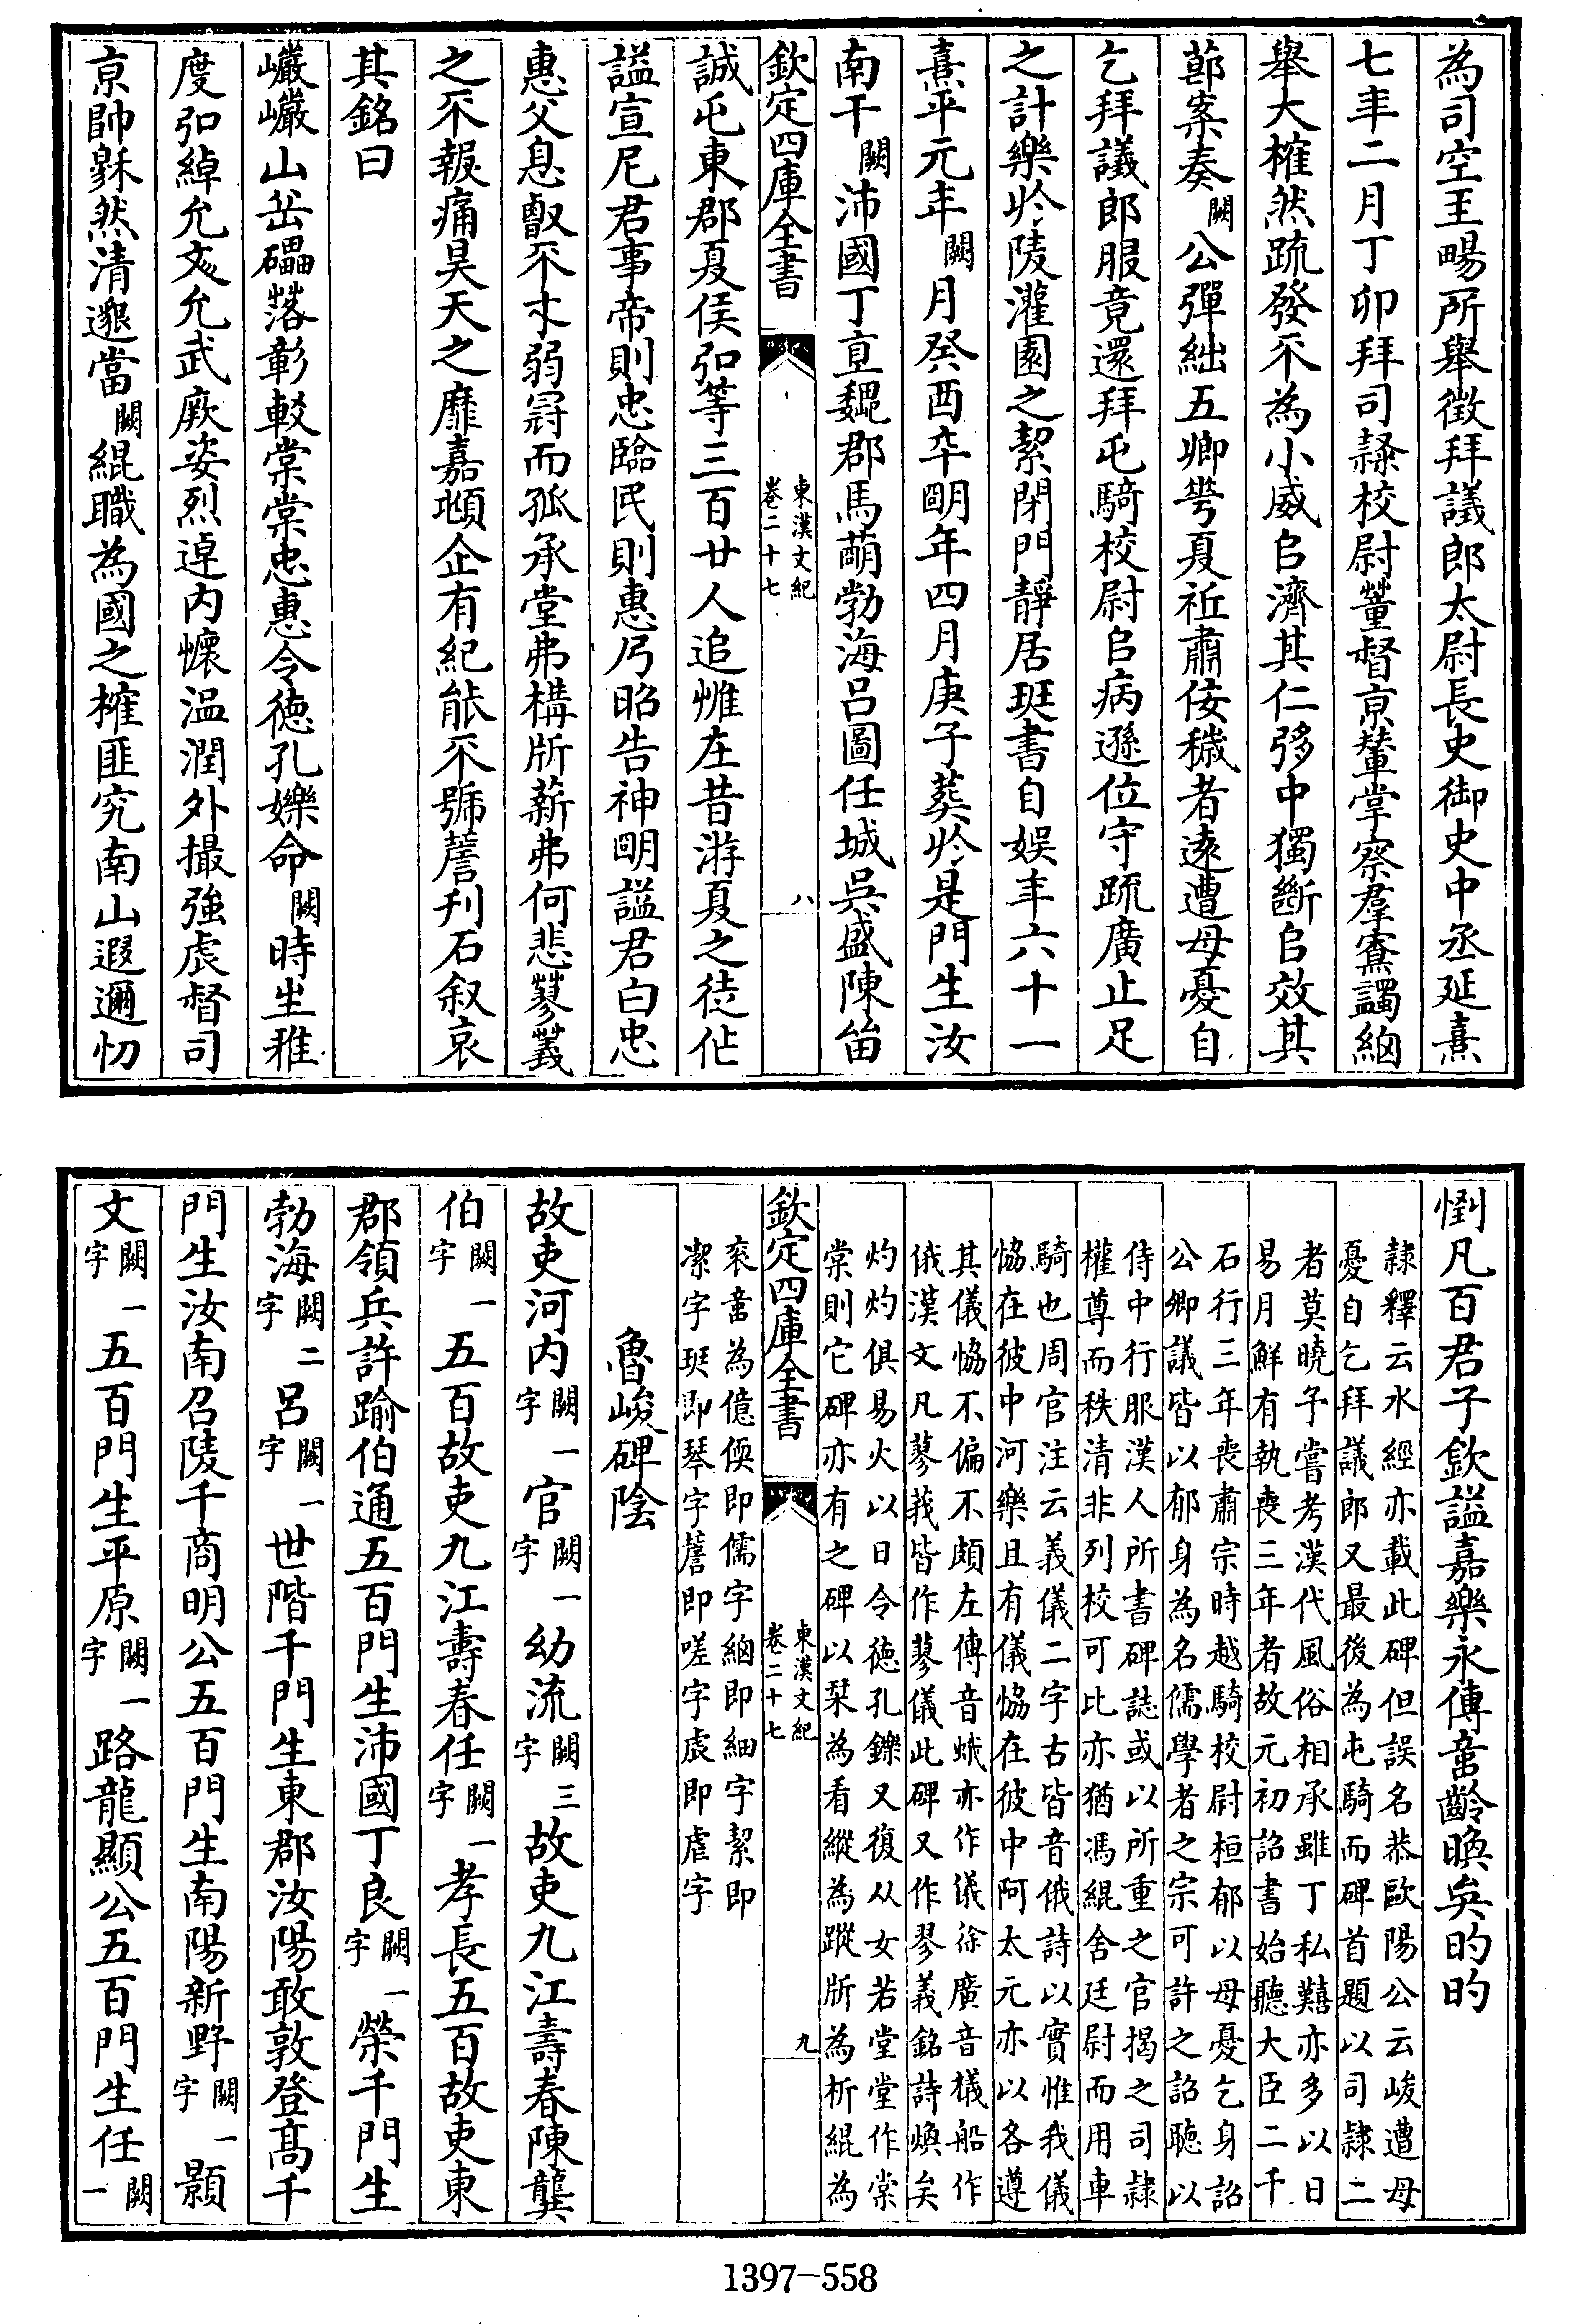 為司空王暢所舉徵拜議郎太尉長史御史中丞延熹
七年二月丁卯拜司隸校尉董督京輦掌察羣寮蠲細
舉大榷然疏發不為小威㠯濟其仁弸中獨斷㠯效其
節案奏闕公彈絀五卿夸夏祗肅佞穢者遠遭母憂自
乞拜議郎服竟還拜屯騎校尉㠯病遜位守疏廣止足
之計樂於陵灌園之絜閉門靜居琴書自娛年六十一
熹平元年闕月癸酉卒明年四月庚子葬於是門生汝
南干闕沛國丁直魏郡馬萌勃海呂圖任城吳盛陳留
欽定四庫全書
東漢文紀
卷二十七
八
誠屯東郡夏侯弘等三百廿人追惟在昔游夏之徒作
謚宣尼君事帝則忠臨民則惠乃昭告神明謚君白忠
惠父息叡不才弱冠而孤承堂弗構斯薪弗何悲蓼義
之不報痛昊天之靡嘉頫企有紀能不號嗟刊石叙哀
其銘曰
巖巖山岳礧落彰較棠棠忠惠令德孔爍命闕時生雅
度弘綽允文允武厥姿烈逴內懷温潤外撮強虐督司
京師穆然清邈當闕緄職為國之榷匪究南山遐邇忉
懰凡百君子欽謚嘉樂永傳啻齡晚矣旳旳
隸釋云水經亦載此碑但誤名恭歐陽公云峻遭母
憂自乞拜議郎又最後為屯騎而碑首題以司隸二
者莫曉予嘗考漢代風俗相承雖丁私囏亦多以日
易月鮮有執喪三年者故元初詔書始聽大臣二千
石行三年喪肅宗時越騎校尉桓郁以母憂乞身詔
公卿議皆以郁身為名儒學者之宗可許之詔聽以
侍中行服漢人所書碑誌或以所重之官揭之司隸
權尊而秩清非列校可比亦猶馮緄舍廷尉而用車
騎也周官注云義儀二字古皆音俄詩以實惟我儀
恊在彼中河樂且有儀恊在彼中阿太元亦以各遵
其儀恊不偏不頗左傳音蛾亦作儀徐廣音檥船作
俄漢文凡蓼莪皆作蓼儀此碑又作蓼義銘詩煥矣
灼灼俱易火以日令德孔鑠又復从女若堂堂作棠
棠則它碑亦有之碑以栞為看縱為蹤斯為析緄為
欽定四庫全書
東漢文紀
卷二十七
九
袞啻為億偄即儒字絪即細字絜即
潔字珡即琴字䓾即嗟字虐即虐字
魯峻碑陰
故吏河内闕一字官闕一字幼流闕三字故吏九江壽春陳龔
伯闕一字五百故吏九江壽春任闕一字孝長五百故吏東
郡領兵許踰伯通五百門生沛國丁良闕一字榮千門生
勃海闕二字呂闕一字世階千門生東郡汝陽敢敦登髙千
門生汝南召陵千商明公五百門生南陽新野闕一字顥
文闕一字五百門生平原闕一字路龍顯公五百門生任闕一
1397—558